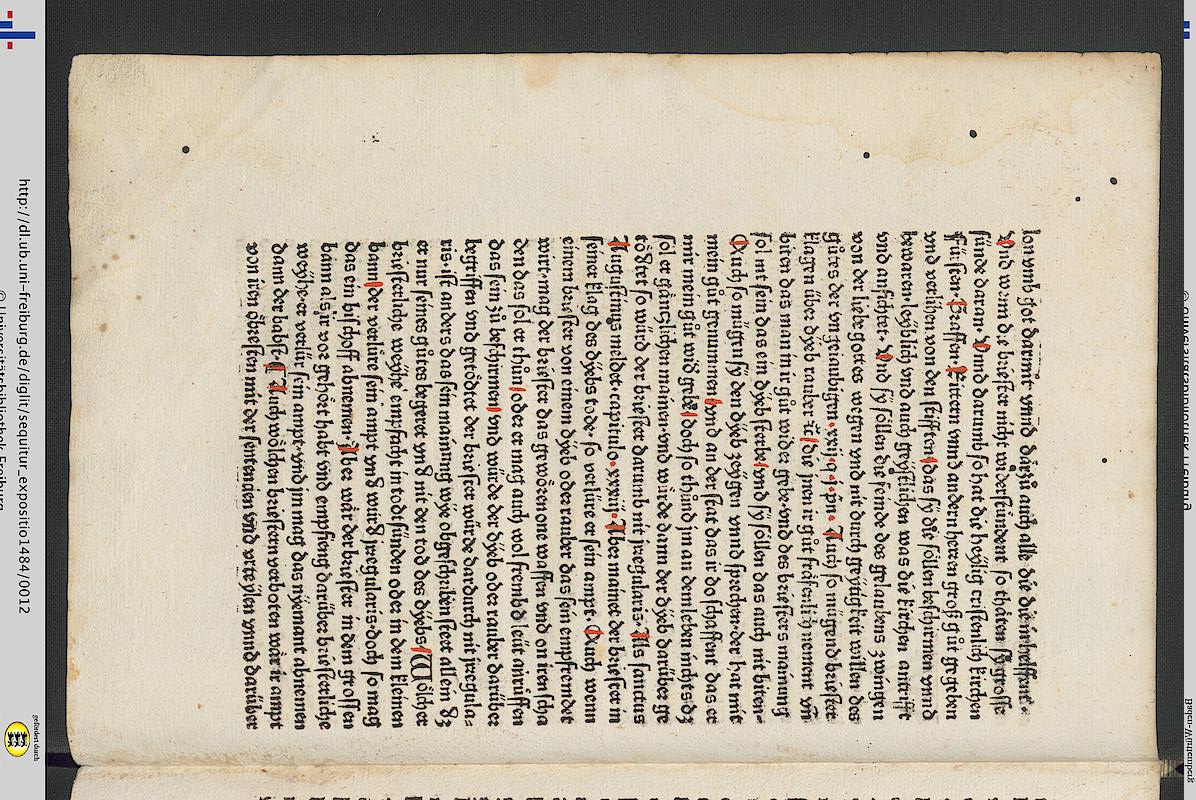 lon vmb got darmit vnnd darzů auch alle die die in helffent·
Vnd wenn die briester nicht widerstůndent so thäten sy grosse
sünde daran· Vnnd darumb so hat die heylig cristenlich kirchen
Fürsten· Graffen· Rittern vnnd andern herren groß gůt gegeben
vnd verlihen von den stifften das sy die söllen beschirmen vnnd
bewaren· leyblich vnd auch geystlichen was die kirchen antrifft
vnd anficht· Vnd sy söllen die feinde des gelaubens zwingen
von der liebe gottes wegen vnd nit durch geytigkeit willen des
gůtes der vngelaubigen· xxiij· q· i· Auch so mügend briester
klagen über dyeb rauber ꝛc die jnen ir gůt fräfenlich nement vn̄
biten das man in ir gůt wider gebe· vnd des briesters mainung
sol nit sein das ein dyeb sterbe vnd sy söllen das auch nit biten·
Auch so mügen sy den dyeb zeygen vnnd sprechen· der hat mir
mein gůt genummen vnd an der stat das ir do schaffent das er
mir mein gůt wid̕ gebe doch so thůnd jm an dem leben nichcz· dz
sol er gänczlichen mainen· vnd wurde dann der dyeb darüber ge
tödtet so würd der briester darumb nit jregularis· Als sanctus
Augustinus meldet capitulo· xxiij· Aber mainet der briester in
seiner klag des dyebs tode· so verlüre er sein ampt· Auch wenn
einem briester von einem dyeb oder rauber das sein empfremdet
wirt· mag der briester das gewören one waffen vnd on iren scha
den das sol er thůn oder er mag auch wol frembd leüt anrůffen
das sein zů beschirmen vnd würde der dyeb oder rauber darüber
begriffen vnd getödtet der briester würde dardurch nit jregula⸗
ris· ist anders das sein mainung wye obgeschriben steet allein dz
er nur seines gůtes begeret vnd nit den tod des dyebs Wölcher
briesterliche weyhe empfacht in todsünden oder in dem kleinen
bann der verlüre sein ampt vnd wurd jregularis· doch so mag
das ein bischoff abnemen· Aber wär der briester in dem grossen
bann als ir vor gehört habt vnd empfieng darüber briesterliche
weyhe· er verlür sein ampt· vnd jm mag das nyemant abnemen
dann der babst· Auch wölchen briestern verboten wär ir ampt
von iren öbresten mit der sentencien vnd vrteylen vnnd darüber
http://dl.ub.uni-freiburg.de/diglit/sequitur_expositio1484/0012
© Universitätsbibliothek Freiburg
gefördert durch